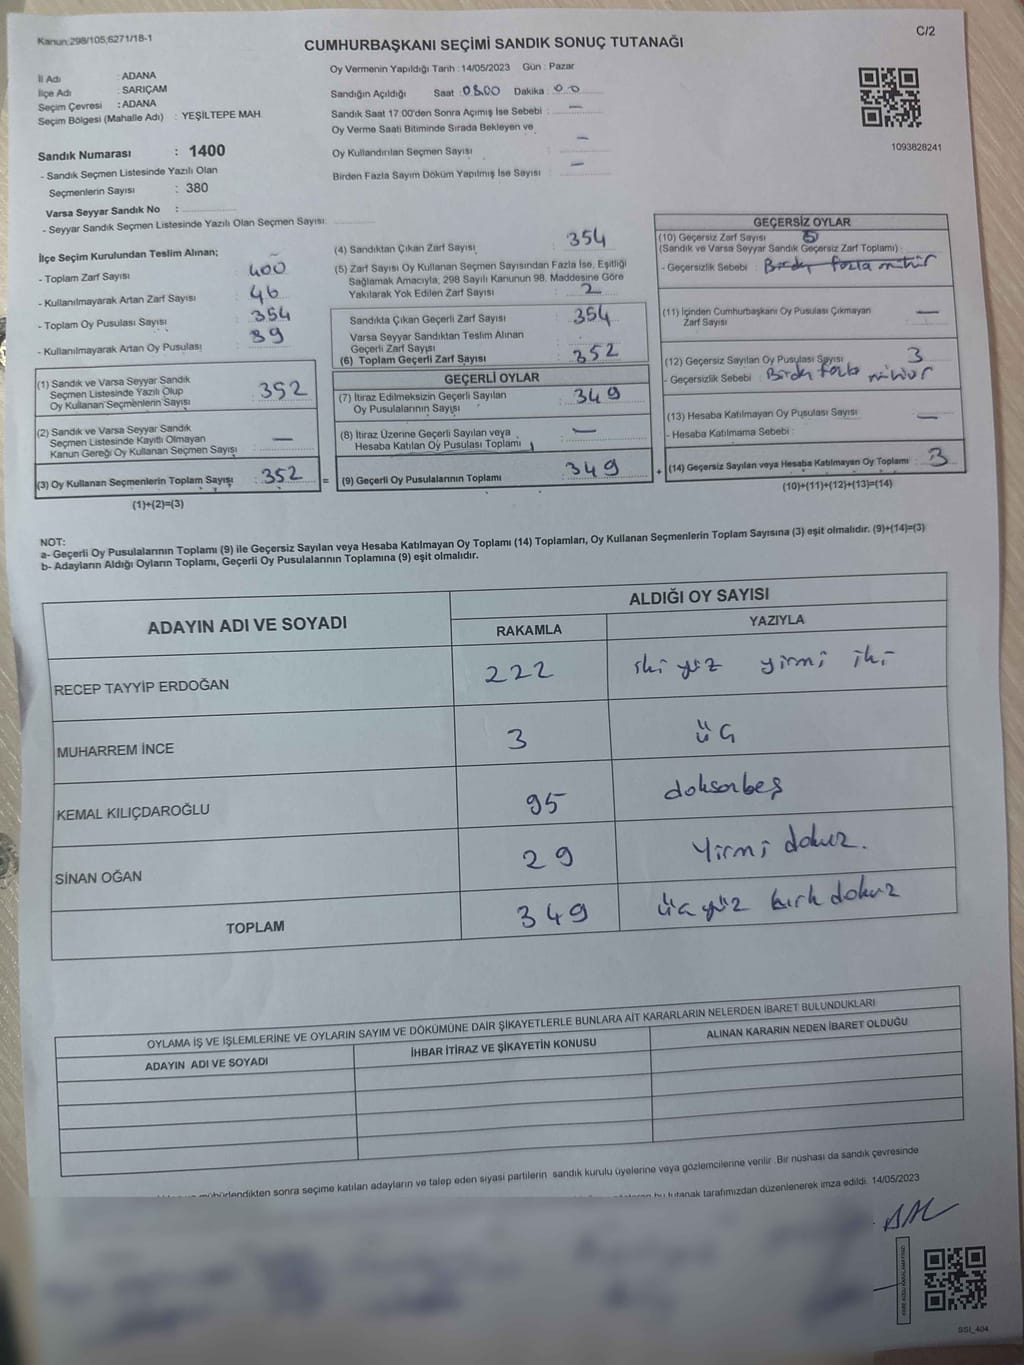 Kanun:298/105;6271/18-1
C/2
CUMHURBAŞKANI SEÇİMİ SANDIK SONUÇ TUTANAĞI
İl Adı : ADANA
İlçe Adı : SARIÇAM
Seçim Çevresi : ADANA
Seçim Bölgesi (Mahalle Adı) : YEŞİLTEPE MAH.
Oy Vermenin Yapıldığı Tarih : 14/05/2023 Gün : Pazar
Sandığın Açıldığı Saat : 08.00 Dakika : 00
Sandık Saat 17:00'den Sonra Açımış İse Sebebi : —
Oy Verme Saati Bitiminde Sırada Bekleyen ve
Oy Kullandırılan Seçmen Sayısı : —
Birden Fazla Sayım Döküm Yapılmış İse Sayısı : —
1093828241
Sandık Numarası : 1400
- Sandık Seçmen Listesinde Yazılı Olan
Seçmenlerin Sayısı : 380
Varsa Seyyar Sandık No :
- Seyyar Sandık Seçmen Listesinde Yazılı Olan Seçmen Sayısı:
İlçe Seçim Kurulundan Teslim Alınan;
- Toplam Zarf Sayısı : 400
- Kullanılmayarak Artan Zarf Sayısı : 46
- Toplam Oy Pusulası Sayısı : 354
- Kullanılmayarak Artan Oy Pusulası : 39
(1) Sandık ve Varsa Seyyar Sandık
Seçmen Listesinde Yazılı Olup
Oy Kullanan Seçmenlerin Sayısı : 352
(2) Sandık ve Varsa Seyyar Sandık
Seçmen Listesinde Kayıtlı Olmayan
Kanun Gereği Oy Kullanan Seçmen Sayısı : —
(3) Oy Kullanan Seçmenlerin Toplam Sayısı : 352 =
(1)+(2)=(3)
(4) Sandıktan Çıkan Zarf Sayısı : 354
(5) Zarf Sayısı Oy Kullanan Seçmen Sayısından Fazla İse, Eşitliği
Sağlamak Amacıyla, 298 Sayılı Kanunun 98. Maddesine Göre
Yakılarak Yok Edilen Zarf Sayısı : 2
Sandıkta Çıkan Geçerli Zarf Sayısı : 354
Varsa Seyyar Sandıktan Teslim Alınan
Geçerli Zarf Sayısı
(6) Toplam Geçerli Zarf Sayısı : 352
GEÇERLİ OYLAR
(7) İtiraz Edilmeksizin Geçerli Sayılan
Oy Pusulalarının Sayısı : 349
(8) İtiraz Üzerine Geçerli Sayılan veya
Hesaba Katılan Oy Pusulası Toplamı : —
(9) Geçerli Oy Pusulalarının Toplamı : 349 +
GEÇERSİZ OYLAR
(10) Geçersiz Zarf Sayısı
(Sandık ve Varsa Seyyar Sandık Geçersiz Zarf Toplamı) :
- Geçersizlik Sebebi : Birden fazla mühür
(11) Oy İçinden Cumhurbaşkanı Oy Pusulası Çıkmayan
Zarf Sayısı —
(12) Geçersiz Sayılan Oy Pusulası Sayısı 3
- Geçersizlik Sebebi : Birden fazla mühür
(13) Hesaba Katılmayan Oy Pusulası Sayısı —
- Hesaba Katılmama Sebebi :
(14) Geçersiz Sayılan veya Hesaba Katılmayan Oy Toplamı : 3
(10)+(11)+(12)+(13)=(14)
NOT:
a- Geçerli Oy Pusulalarının Toplamı (9) ile Geçersiz Sayılan veya Hesaba Katılmayan Oy Toplamı (14) Toplamları, Oy Kullanan Seçmenlerin Toplam Sayısına (3) eşit olmalıdır. (9)+(14)=(3)
b- Adayların Aldığı Oyların Toplamı, Geçerli Oy Pusulalarının Toplamına (9) eşit olmalıdır.
ADAYIN ADI VE SOYADI
ALDIĞI OY SAYISI
RAKAMLA YAZIYLA
RECEP TAYYİP ERDOĞAN 222 iki yüz yirmi iki
MUHARREM İNCE 3 üç
KEMAL KILIÇDAROĞLU 95 doksanbeş
SİNAN OĞAN 29 Yirmi dokuz.
TOPLAM 349 üçyüz kırk dokuz
OYLAMA İŞ VE İŞLEMLERİNE VE OYLARIN SAYIM VE DÖKÜMÜNE DAİR ŞİKAYETLERLE BUNLARA AİT KARARLARIN NELERDEN İBARET BULUNDUKLARI
ADAYIN ADI VE SOYADI İHBAR İTİRAZ VE ŞİKAYETİN KONUSU ALINAN KARARIN NEDEN İBARET OLDUĞU
mühürlendikten sonra seçime katılan adayların ve talep eden siyasi partilerin sandık kurulu üyelerine veya gözlemcilerine verilir. Bir nüshası da sandık çevresinde
bu tutanak tarafımızdan düzenlenerek imza edildi. 14/05/2023
SSI_404